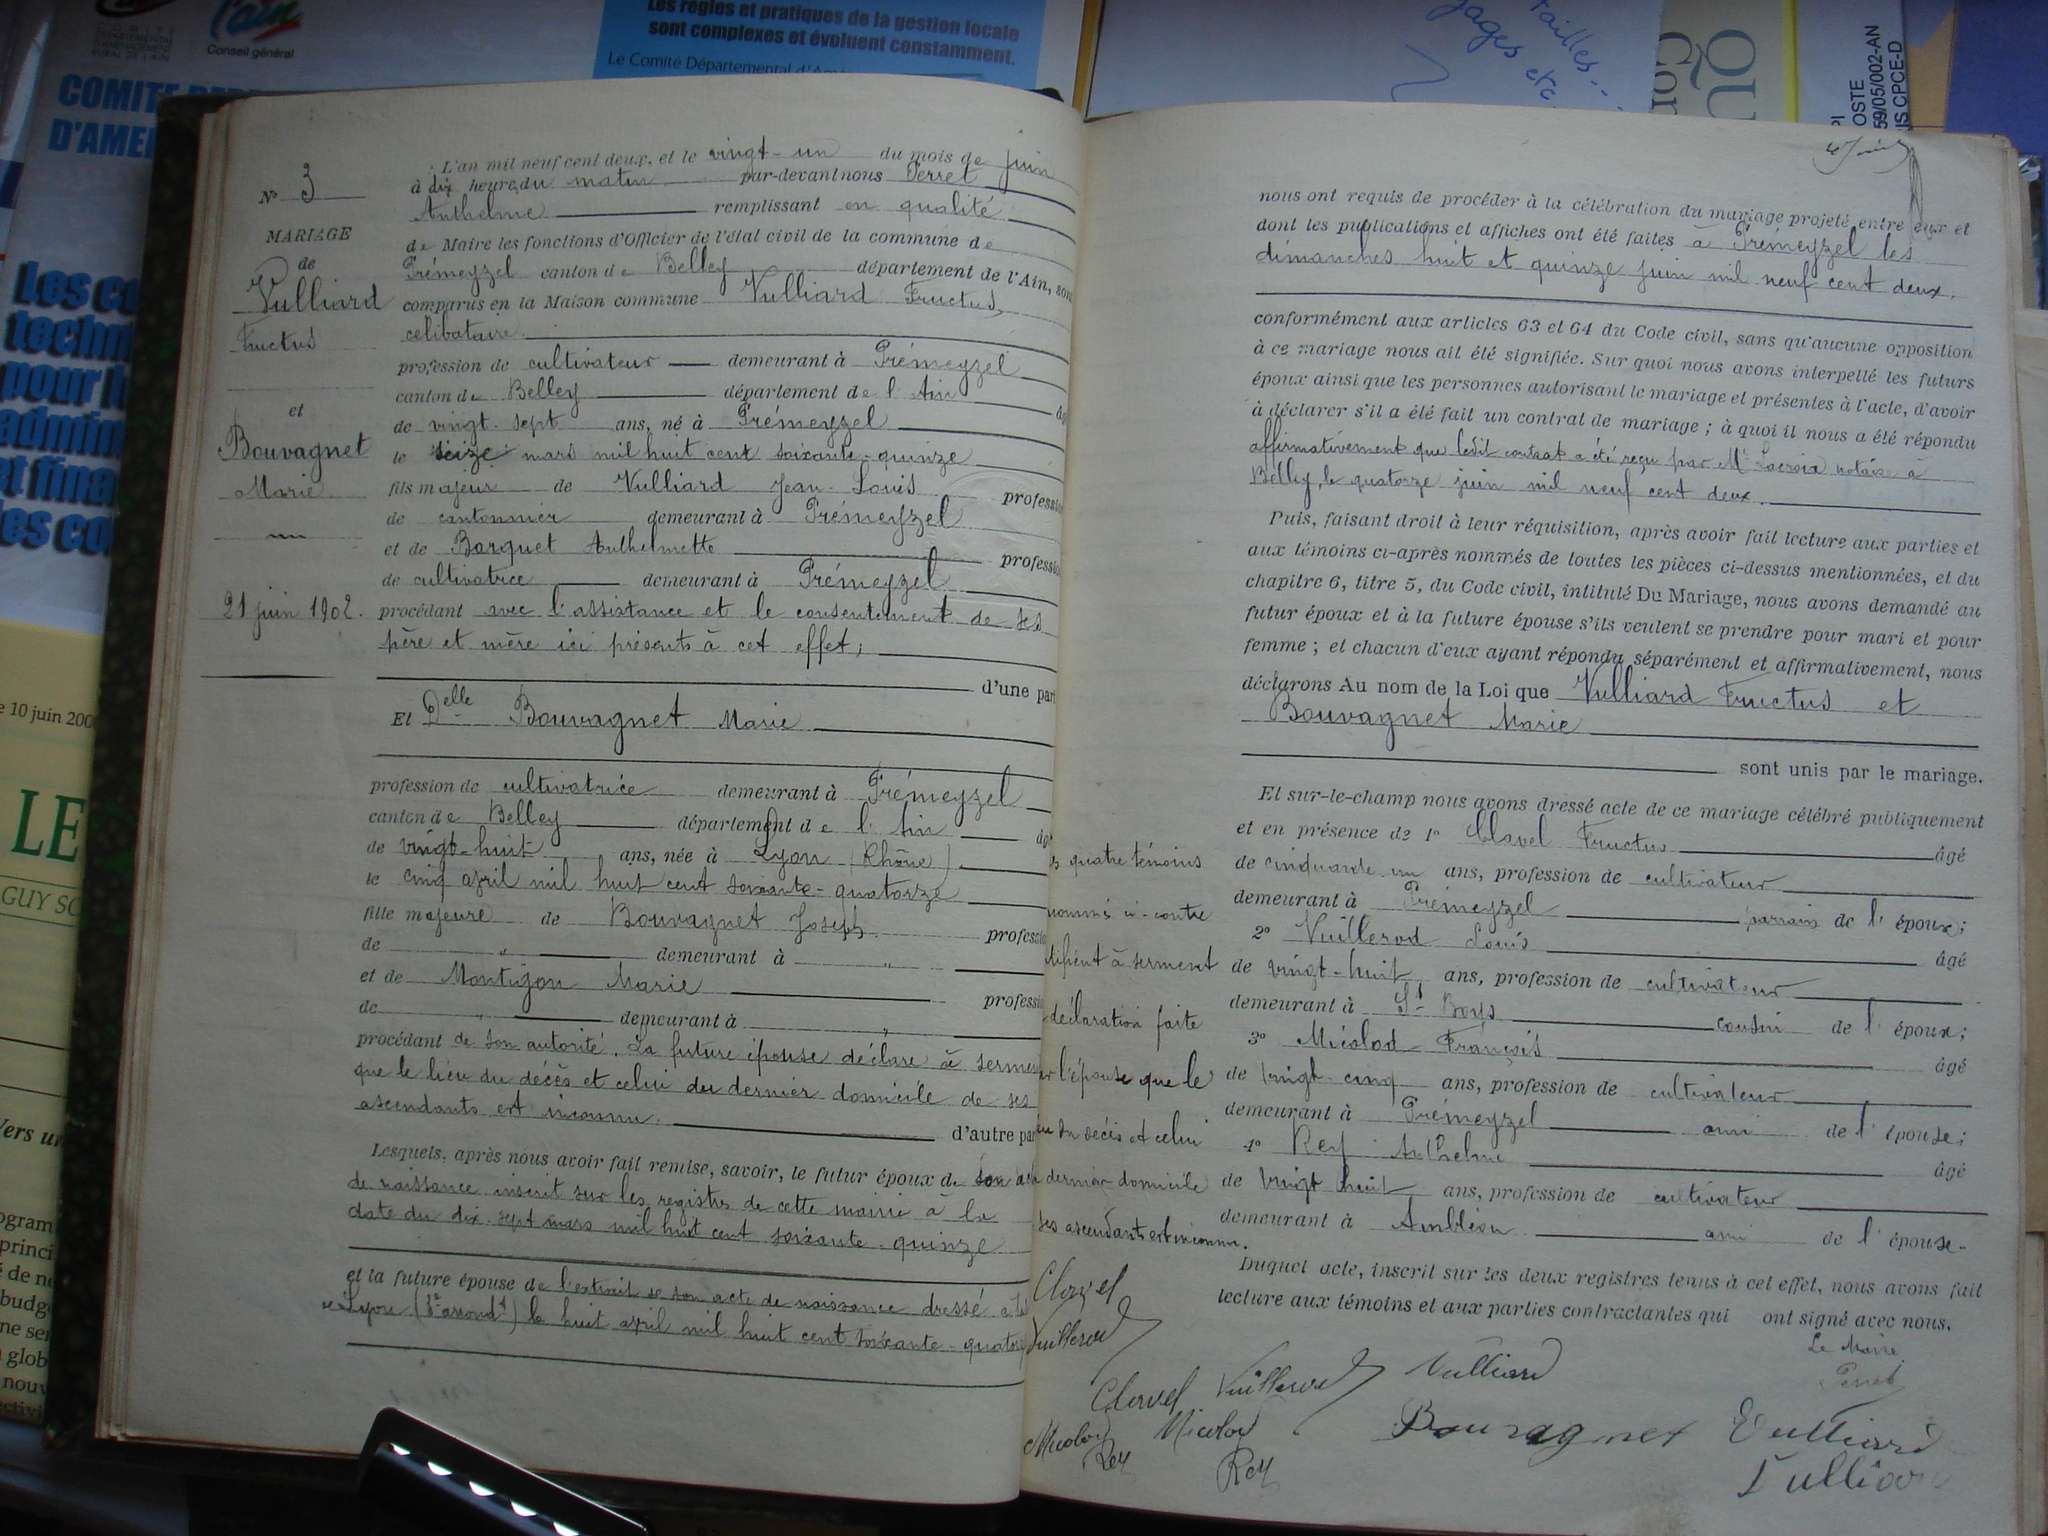 l'ain
Conseil général
COMITE
D'AME
Les règles et pratiques de la gestion locale
sont complexes et évoluent constamment.
Le Comité Départemental
tailles...
gages etc.
OSTE
59/05/002-AN
IS CPCE-D
Les
techn
pour
admin
et fina
les co
e 10 juin 200
LE
GUY SC
N° 3
MARIAGE
de
Vulliard
Fructus
et
Bouvagnet
Marie
21 juin 1902.
L'an mil neuf cent deux, et le vingt-un du mois de juin
à dix heure du matin par-devant nous Perret
Anthelme remplissant en qualité
de Maire les fonctions d'Officier de l'état civil de la commune de
Prémeyzel canton de Belley département de l'Ain, sont
comparus en la Maison commune Vulliard Fructus,
celibataire.
profession de cultivateur demeurant à Prémeyzel
canton de Belley département de l'Ain
de vingt-sept ans, né à Prémeyzel
le seize mars mil huit cent soixante-quinze
fils majeur de Vulliard Jean-Louis professi
de cantonnier demeurant à Prémeyzel
et de Borquet Anthelmette professi
de cultivatrice demeurant à Prémeyzel
procédant avec l'assistance et le consentement de ses
père et mère ici présents à cet effet;
d'une part
Et Delle Bouvagnet Marie
profession de cultivatrice demeurant à Prémeyzel
canton de Belley département de l'Ain
de vingt-huit ans, née à Lyon (Rhône)
le cinq april mil huit cent soixante-quatorze
fille majeure de Bouvagnet Joseph professi
de " demeurant à "
et de Montigon Marie professi
de " demeurant à "
procédant de son autorité. La future épouse déclare à serment
que le lieu du décès et celui du dernier domicile de ses
ascendants est inconnu.
d'autre part
Lesquels, après nous avoir fait remise, savoir, le futur époux de son acte
de naissance inscrit sur les registres de cette mairie à la
date du dix-sept mars mil huit cent soixante-quinze
et la future épouse de l'extrait de son acte de naissance dressé à
Lyon (3e arrondt) le huit april mil huit cent soixante-quatorze
quatre témoins
nommés ci-contre
à serment
déclaration faite
l'épouse que le
du décès et celui
dernier domicile
ses ascendants est inconnu.
Clavel
Vuillerod
Micolod
Rey
nous ont requis de procéder à la célébration du mariage projeté entre eux et
dont les publications et affiches ont été faites à Prémeyzel les
dimanches huit et quinze juin mil neuf cent deux.
conformément aux articles 63 et 64 du Code civil, sans qu'aucune opposition
à ce mariage nous ait été signifiée. Sur quoi nous avons interpellé les futurs
époux ainsi que les personnes autorisant le mariage et présentes à l'acte, d'avoir
à déclarer s'il a été fait un contrat de mariage ; à quoi il nous a été répondu
affirmativement que ledit contrat a été reçu par Me Lacroix notaire à
Belley, le quatorze juin mil neuf cent deux.
Puis, faisant droit à leur réquisition, après avoir fait lecture aux parties et
aux témoins ci-après nommés de toutes les pièces ci-dessus mentionnées, et du
chapitre 6, titre 5, du Code civil, intitulé Du Mariage, nous avons demandé au
futur époux et à la future épouse s'ils veulent se prendre pour mari et pour
femme ; et chacun d'eux ayant répondu séparément et affirmativement, nous
déclarons Au nom de la Loi que Vulliard Fructus et
Bouvagnet Marie
sont unis par le mariage.
Et sur-le-champ nous avons dressé acte de ce mariage célébré publiquement
et en présence de 1° Clavel Fructus âgé
de cinquante un ans, profession de cultivateur
demeurant à Prémeyzel parrain de l'époux;
2° Vuillerod Louis âgé
de vingt-huit ans, profession de cultivateur
demeurant à St Boys cousin de l'époux;
3° Micolod François âgé
de vingt-cinq ans, profession de cultivateur
demeurant à Prémeyzel ami de l'épouse;
4° Rey Anthelme âgé
de vingt huit ans, profession de cultivateur
demeurant à Ambléon ami de l'épouse.
Duquel acte, inscrit sur les deux registres tenus à cet effet, nous avons fait
lecture aux témoins et aux parties contractantes qui ont signé avec nous.
Le Maire
Perret
Clavel Vuillerod Vulliard
Micolod Bouvagnet Vulliard
Rey Vulliard